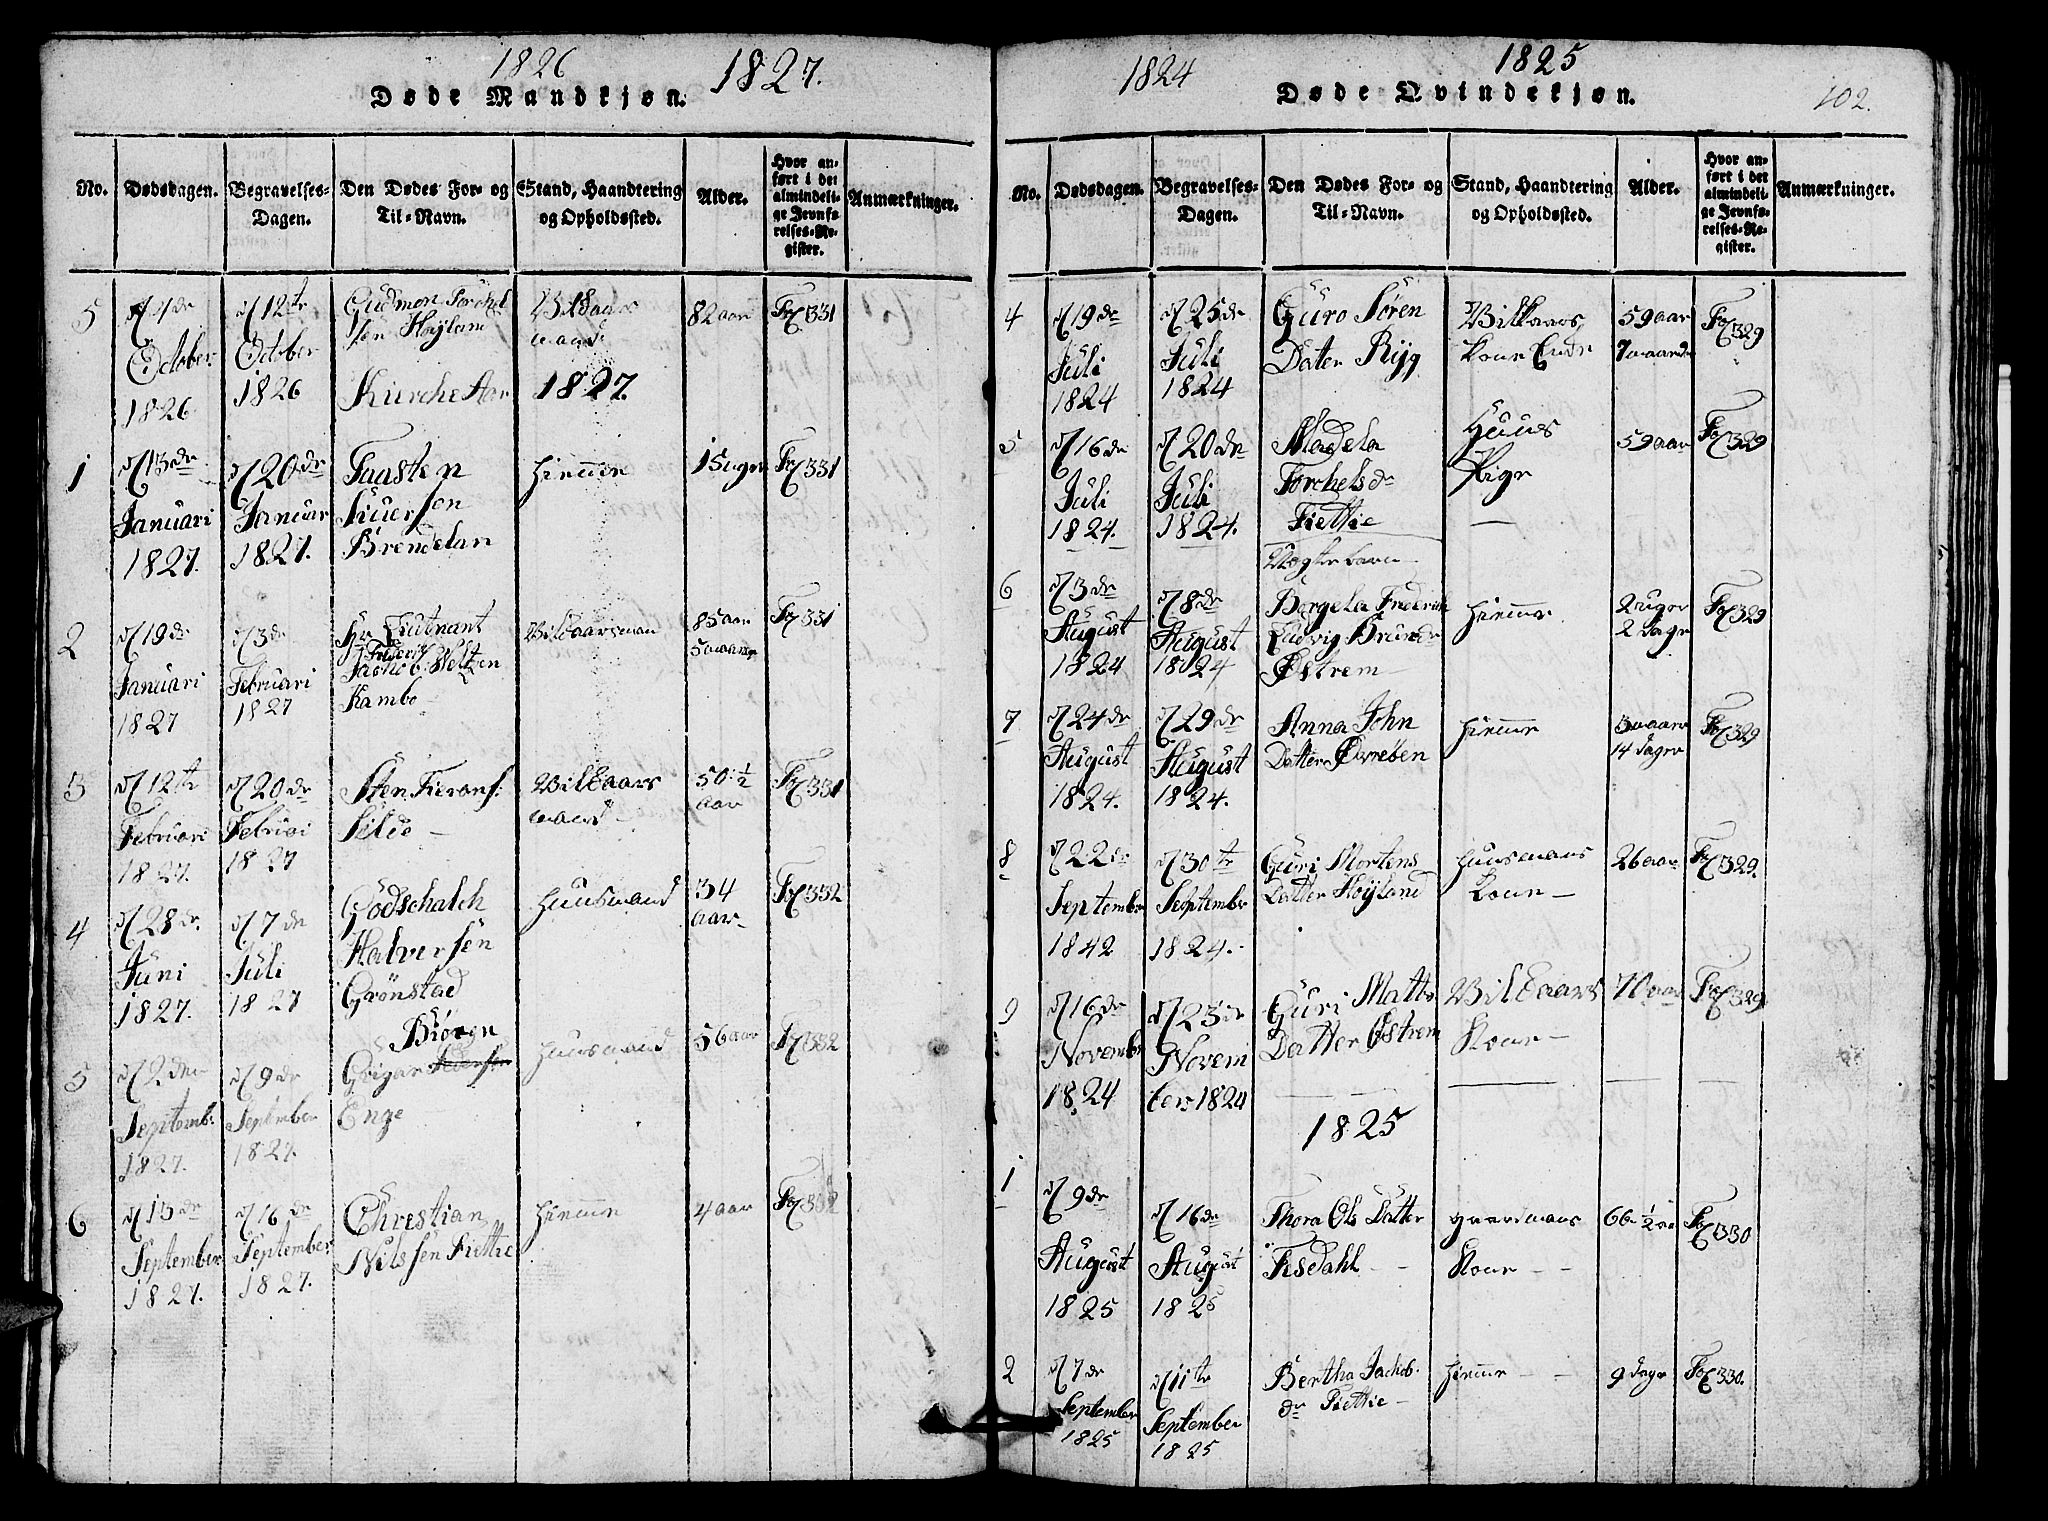 1826
1827.
Døde Mandkjøn.
No.
Dødsdagen.
Begravelses-
Dagen.
Den Dødes For- og
Til-Navn.
Stand, Haandtering
og Opholdssted.
Alder.
Hvor an-
ført i det
almindeli-
ge Jevnfø-
relses-Re-
gister.
Anmærkninger.
5
d 7de
October
1826
d 12te
October
1826
Gudmon Torchel
søn Høyland
mand
82 aar
Fol 331
Kirche Aar 1827.
1
d 13de
Januari
1827.
d 20de
Januar
1827.
Taasten
Siuersen
Brendelan
hiemme
15 uger
Fol 331
2
d 19de
Januari
1827
d 3de
Februari
1827
Hr Liutnant
Jachob Welten
Kambo
Vilkaarsman
85 aar
Fol 331
3
d 12te
Februari
1827.
d 20de
Februari
1827
Sten
Silde
Vilkaars
mand
50 1/2
aar
Fol 331
4
d 28de
Juni
1827.
d 7de
Juli
1827
Godschalch
Halversen
Grönstad
Huusmand
34
aar
Fol 332
5
d 2den
Septemb.
1827.
d 9de
September
1827.
Biörgn
Enge
Huusmand
56 aar
Fol 332
6
d 13de
September
1827.
d 16de
September
1827.
Christian
Nilssen Fiettie
hiemme
4 aar
Fol 332
1824
1825
102.
Døde Qvindekjøn.
No.
Dødsdagen.
Begravelses-
Dagen.
Den Dødes For- og
Til-Navn.
Stand, Haandtering
og Opholdssted.
Alder.
Hvor an-
ført i det
almindeli-
ge Jevnfø-
relses-Re-
gister.
Anmærkninger.
4
d 19de
Juli
1824
d 25de
Juli
1824
Guro Sören
Dater Ryg
Vilkaars
kone Enke
59 aar
Fol 329
5
d 16de
Juli
1824.
d 20de
Juli
1824.
Madela
Torchelsdr
Fiettie
Huus
Pige
59 aar
Fol 329
6
d 3de
August
1824
d 8de
August
1824
Ludvig
Østrem
hiemme
2 uger
2 dage
Fol 329
7
d 24de
August
1824.
d 29de
August
1824.
Anna John
Datter
hiemme
14 dager
Fol 329
8
d 22de
September
1842
d 30te
September
1824.
Guri Mortens
Datter Høyland
Huusmans
Kone
26 aar
Fol 329.
9
d 16de
Novembr
1824
d 23de
Novem
ber 1824
Guri Matts
Datter Østrem
Vilkaars
Kone
70 aar
Fol 329
1825
1
d 9de
August
1825
d 16de
August
1825
Thora Ols Datter
Fisdahl
gaardmans
Kone
66 1/2 aa
Fol 330
2
d 7de
September
1825
d 11te
September
1825
Bertha Jachob.
dr Fiettie
hiemme
9 dage
Fol 330.